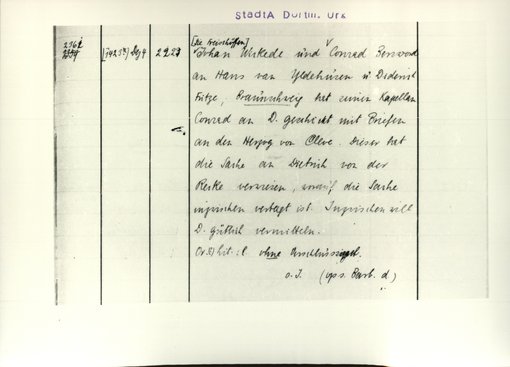 StadtA Dortm. Urk
[die Freischöffen]
2362 Johan Wickede und Conrad Berswood
2927
an Hans van Yldehusen u Diderist
Fritze, Braunschweig hat seinen Kapellan
Conrad an D. geschickt mit Briefen
an den Herzog von Cleve. Dieser hat
die Sache an Dietrich von der
Recke verwiesen, worauf die Sache
inzwischen vertagt ist. Inzwischen will
D. gütlich vermitteln.
ohne Verschlusssiegel.
o. J. (vgs. Barb. d)